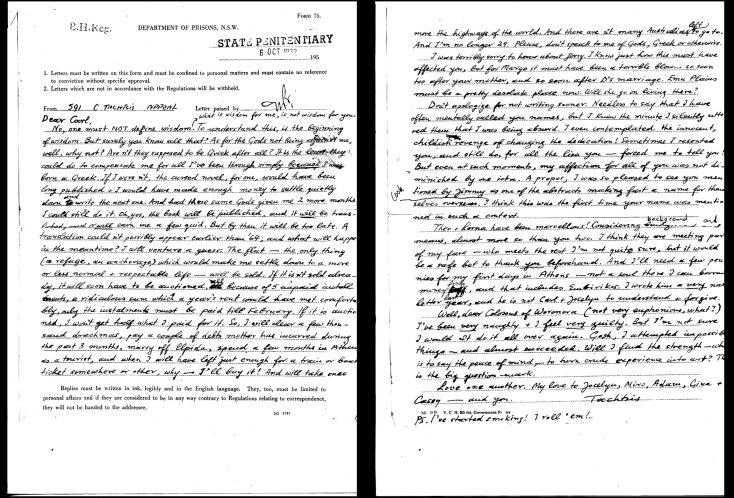 C.H. Reg.
FORM 75.
DEPARTMENT OF PRISONS, N.S.W.
STATE PENITENTIARY
6 OCT
195
1. Letters must be written on this form and must be confined to personal matters and must contain no reference
to conviction without specific approval.
2. Letters which are not in accordance with the Regulations will be withheld.
From 591 C TACHTSIS APPEAL Letter passed by
what is wisdom for me, is not wisdom for you
Dear Carl,
No, one must NOT define wisdom. To understand this, is the beginning
of wisdom. But surely you know all that? As for the Gods not being against me,
well, why not? Aren't they supposed to be Greek after all? It is the least they
could do to compensate me for all I've been through simply because I was
born a Greek. If I weren't, the cursed novel, for one, would have been
long published & I would have made enough money to settle quietly
down and write the next one. And had these same Gods given me 2 more months
I could still do it. Oh yes, the book will be published, and it will be trans-
lated, and it will earn me a few quid. But by then it will be too late. A
translation could not possibly appear earlier than '64, and what will happen
in the meantime? I will venture a guess. The flat — the only thing
(a refuge, an anchorage) which would make me settle down to a more
or less normal & respectable life — will be sold. If it isn't sold alrea-
dy, it will soon have to be auctioned, because of 5 unpaid instalments,
a ridiculous sum which a year's rent would have met comforta-
bly, why the instalments must be paid till February. If it is auctio-
ned, I won't get half what I paid for it. So, I will clear a few thou-
sand drachmas, pay a couple of debts mother has incurred during
the past 3 months, marry off Elpida, spend a few months in Athens
as a tourist, and when I will have left just enough for a train or boat
ticket somewhere or other, why — I'll buy it! And will take once
Replies must be written in ink, legibly and in the English language. They, too, must be limited to
personal affairs and if they are considered to be in any way contrary to Regulations relating to correspondence,
they will not be handed to the addressee.
more the highways of the world. And there aren't many Australias left to go to.
And I'm no longer 29. Please, don't speak to me of Gods, Greek or otherwise.
I was terribly sorry to hear about
affected you, but for Margo it must have been a terrible blow — so soon
too after your mother, and so soon after D's marriage. Emu Plains
must be a pretty desolate place now. Will she go on living there?
Don't apologize for not writing sooner. Needless to say that I have
often mentally called you names, but I knew the minute I silently utte-
red them that I was being absurd. I even contemplated the innocent,
childish revenge of changing the dedication! Sometimes I resented
you, and still do, for all the lies you — forced me to tell you!
But even at such moments, my affection for all of you was not di-
minished by one iota. A propos, I was so pleased to see you men-
tioned by Jimmy as one of the abstracts making fast a name for them-
selves overseas. I think this was the first time your name was mentio-
ned in such a context.
Theo & Lorna have been marvellous! Considering background and
means, almost more so than you two. I think they are meeting part
of my fare — who meets the rest I'm not quite sure, but it would
be a safe bet to thank you beforehand. And I'll need a few pen-
nies for my first days in Athens — not a soul there I can borrow
money off, and that includes Embirikos. I wrote him a very nasty
letter last year, and he is not Carl & Jocelyn to understand & forgive.
Well, dear Colossus of Woronora (not very euphonious, what?)
I've been very naughty & I feel very guilty. But I'm not sure
I would not do it all over again. Gosh, I attempted impossible
things — and almost succeeded. Will I find the strength — wh
is to say the peace of mind — to turn crude experience into art? Th
is the big question-mark.
Love one another. My love to Jocelyn, Miro, Adam, Gina +
Casey — and you.
Tachtsis
V. C. N. Blight, Government Printer
P.S. I've started smoking! I roll 'em!..